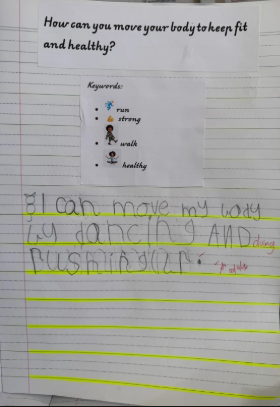 How can you move your body to keep fit
and healthy?
Keywords:
run
strong
walk
healthy
I can move my body
by dancing AND doing
pushingup.